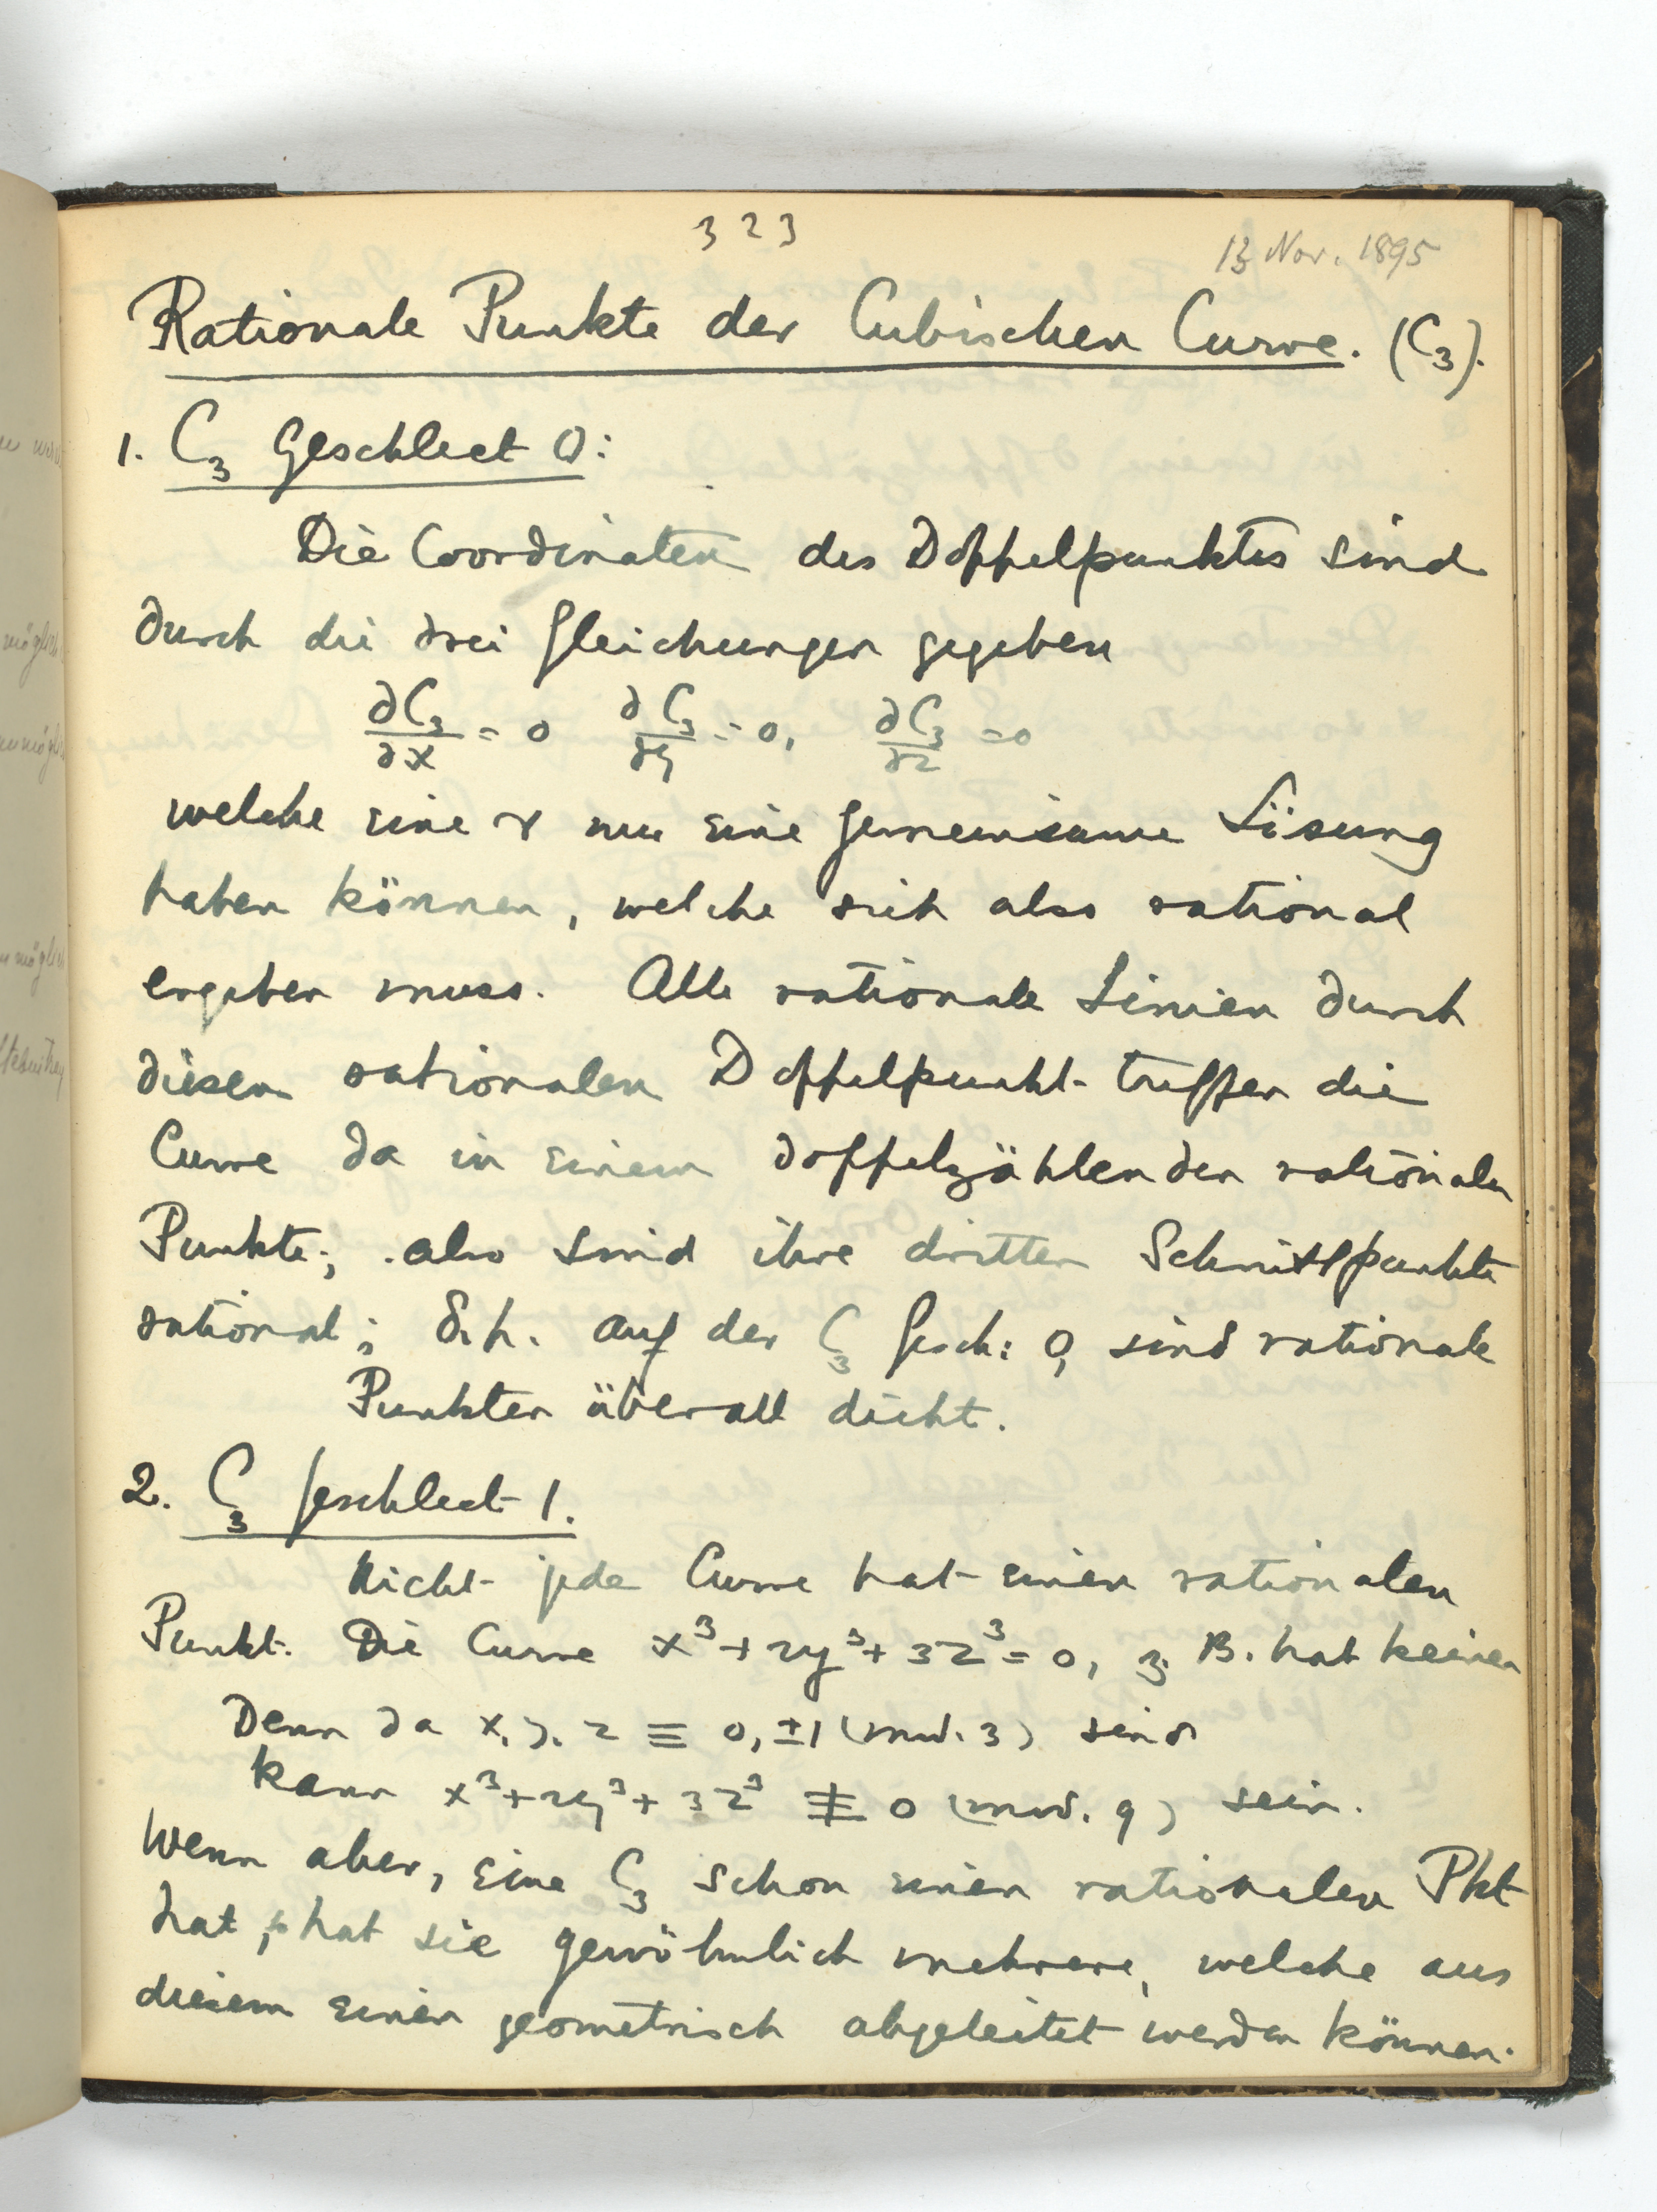 323
13 Nov. 1895
Rationale Punkte der Cubischen Curve. (C₃).
1. C₃ Geschlect 0:
Die Coordinaten des Doppelpunktes sind
durch die drei Gleichungen gegeben
∂C₃/∂x = 0 ∂C₃/∂y = 0, ∂C₃/∂z = 0
welche eine & nur eine gemeinsame Lösung
haben können, welche sich also rational
ergeben muss. Alle rationale Linien durch
diesen rationalen Doppelpunkt treffen die
Curve da in einem doppelzählenden rationalen
Punkte; also sind ihre dritten Schnittpunkte
rational; d.h. auf der C₃ Gesch: 0, sind rationale
Punkten überall dicht.
2. C₃ Geschlect 1.
Nicht jede Curve hat einen rationalen
Punkt. Die Curve x³ + 2y³ + 3z³ = 0, z. B. hat keinen
Denn da x, y, z ≡ 0, ±1 (mod. 3) sind
kann x³ + 2y³ + 3z³ ≢ 0 (mod. 9) sein.
Wenn aber, eine C₃ schon einen rationalen Pkt
hat, hat sie gewöhnlich mehrere, welche aus
diesem einen geometrisch abgeleitet werden können.
möglich